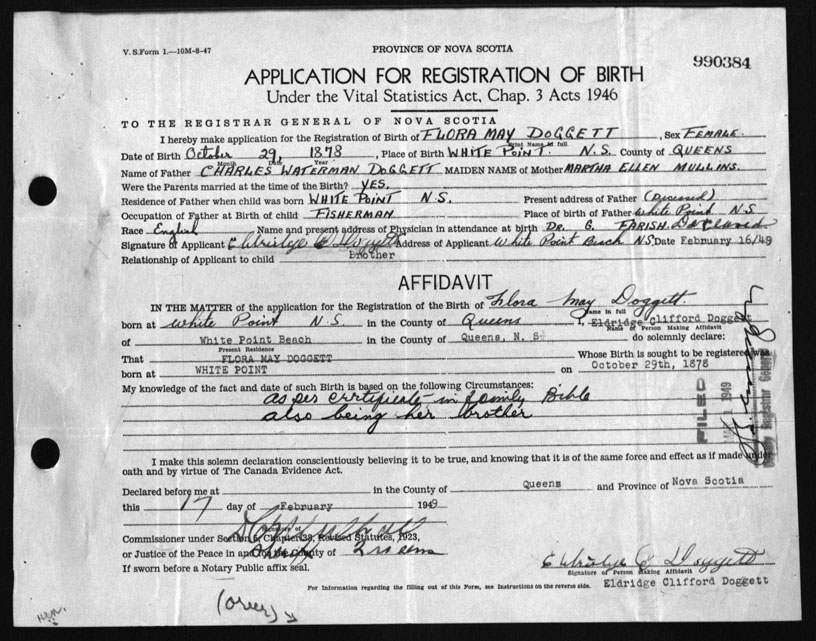 V. S. Form 1.—10M-8-47
PROVINCE OF NOVA SCOTIA
990384
APPLICATION FOR REGISTRATION OF BIRTH
Under the Vital Statistics Act, Chap. 3 Acts 1946
TO THE REGISTRAR GENERAL OF NOVA SCOTIA
I hereby make application for the Registration of Birth of FLORA MAY DOGGETT, Sex FEMALE.
Print Name in full
Date of Birth October 29, 1878, Place of Birth WHITE POINT. N.S. County of QUEENS
Month Date Year
Name of Father CHARLES WATERMAN DOGGETT MAIDEN NAME of Mother MARTHA ELLEN MULLINS.
Were the Parents married at the time of the Birth? YES.
Residence of Father when child was born WHITE POINT N.S. Present address of Father (Deceased)
Occupation of Father at Birth of child FISHERMAN Place of birth of Father White Point N.S.
Race English Name and present address of Physician in attendance at birth DR. G. FARISH.
Signature of Applicant Doggett Address of Applicant White Point Beach N.S. Date February 16/49
Relationship of Applicant to child brother
AFFIDAVIT
IN THE MATTER of the application for the Registration of the Birth of Flora May Doggett.
Name in full
born at White Point N.S. in the County of Queens I, Eldridge Clifford Doggett
Name of Person Making Affidavit
of White Point Beach in the County of Queens, N. S. do solemnly declare:
Present Residence
That FLORA MAY DOGGETT Whose Birth is sought to be registered was
born at WHITE POINT on October 29th, 1878
My knowledge of the fact and date of such Birth is based on the following Circumstances:
as per certificate in family Bible
also being her brother
FILED
1949
Registrar General
I make this solemn declaration conscientiously believing it to be true, and knowing that it is of the same force and effect as if made under
oath and by virtue of The Canada Evidence Act.
Declared before me at in the County of Queens and Province of Nova Scotia
this 17 day of February 1949
Commissioner under Section 6, Chapter 38, Revised Statutes, 1923,
or Justice of the Peace in and for the County of Queens
If sworn before a Notary Public affix seal.
Doggett
Signature of Person Making Affidavit
Eldridge Clifford Doggett
For Information regarding the filling out of this Form, see Instructions on the reverse side.
(over)